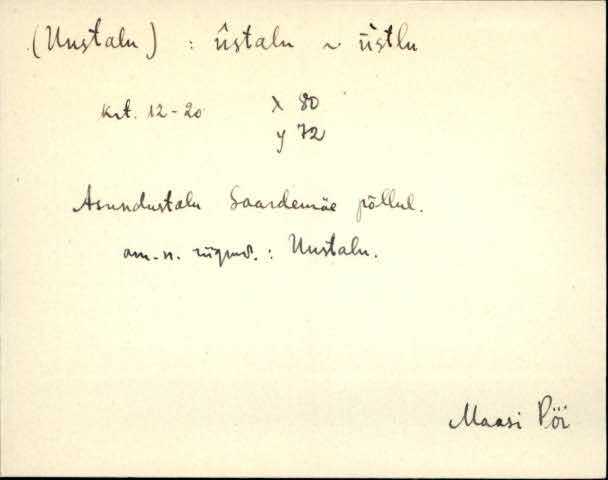 (Uustalu) : ūstalu ~ ūstlu
krt. 12-20 X 80
y 72
Asundustalu Saardemäe põllul.
am. n. : Uustalu.
Maasi Pöi